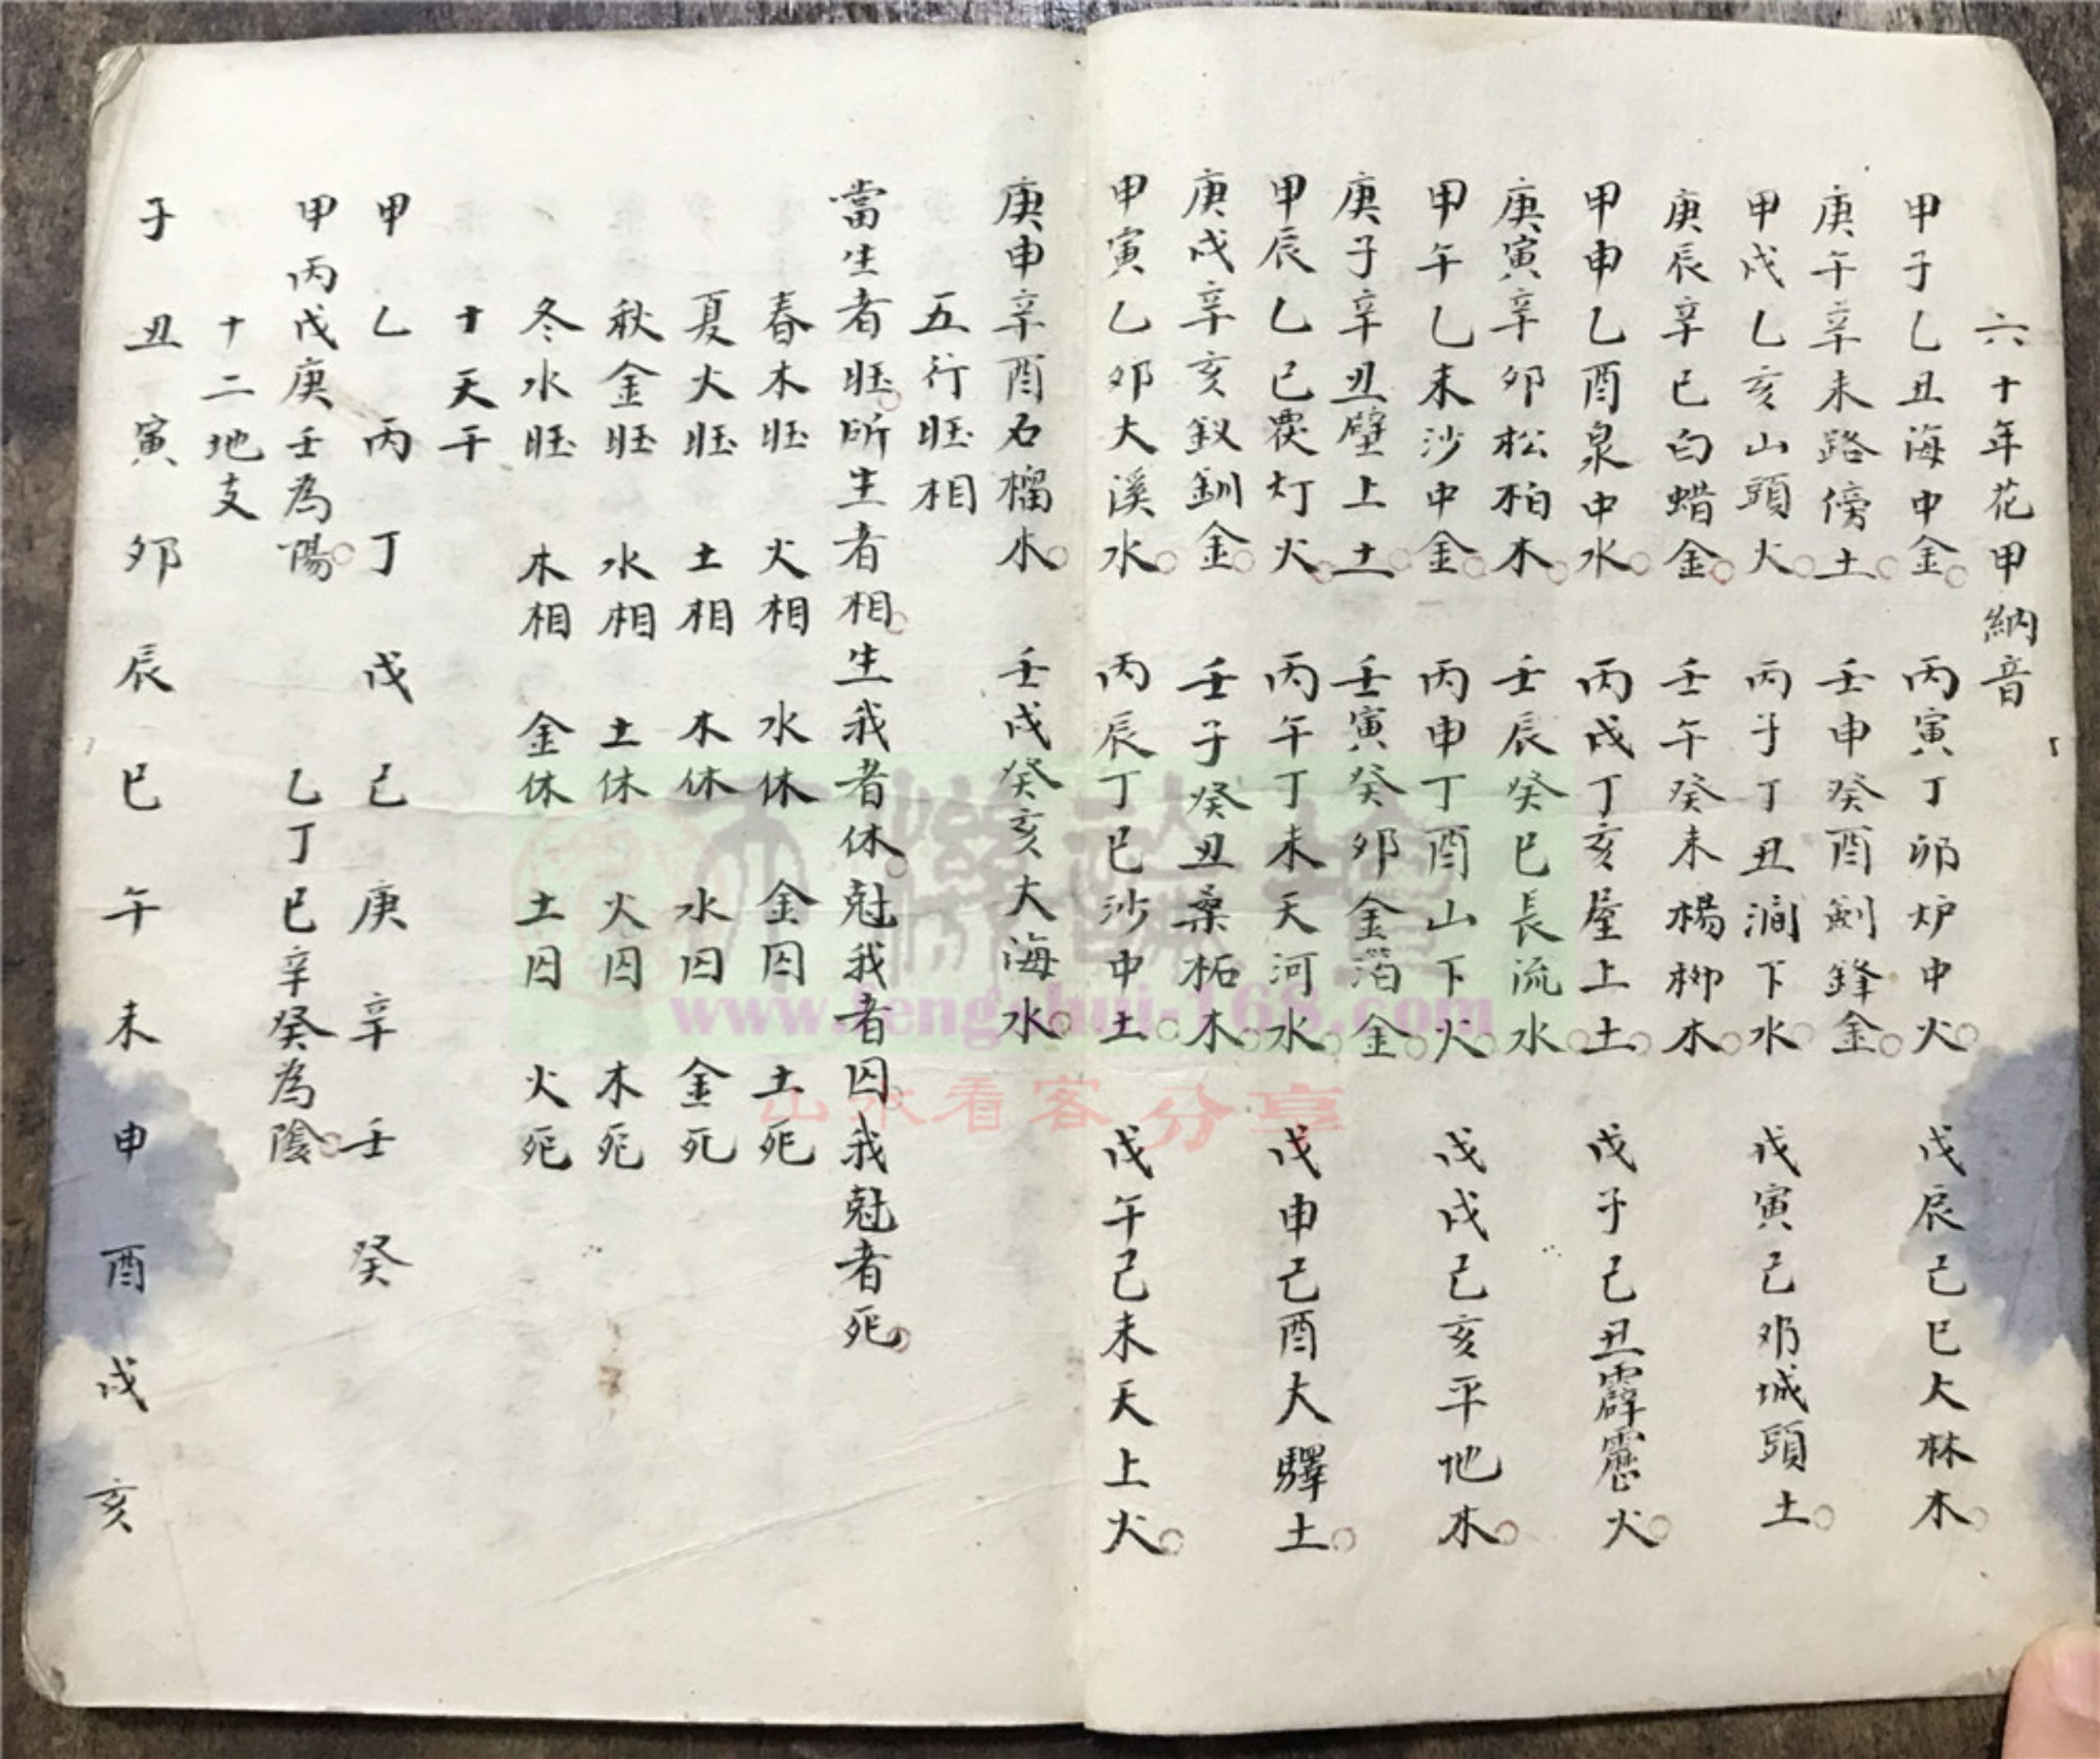 六十年花甲納音
甲子乙丑海中金 丙寅丁卯炉中火 戊辰己巳大林木
庚午辛未路傍土 壬申癸酉劍鋒金
甲戌乙亥山頭火 丙子丁丑澗下水 戊寅己卯城頭土
庚辰辛巳白蜡金 壬午癸未楊柳木
甲申乙酉泉中水 丙戌丁亥屋上土 戊子己丑霹靂火
庚寅辛卯松柏木 壬辰癸巳長流水
甲午乙未沙中金 丙申丁酉山下火 戊戌己亥平地木
庚子辛丑壁上土 壬寅癸卯金箔金
甲辰乙巳覆灯火 丙午丁未天河水 戊申己酉大驛土
庚戌辛亥釵釧金 壬子癸丑桑柘木
甲寅乙卯大溪水 丙辰丁巳沙中土 戊午己未天上火
庚申辛酉石榴木 壬戌癸亥大海水
五行旺相
當生者旺所生者相生我者休尅我者囚我尅者死
春木旺 火相 水休 金囚 土死
夏火旺 土相 木休 水囚 金死
秋金旺 水相 土休 火囚 木死
冬水旺 木相 金休 土囚 火死
十天干
甲乙丙丁戊己庚辛壬癸
甲丙戊庚壬為陽 乙丁巳辛癸為陰
十二地支
子丑寅卯辰巳午未申酉戌亥
www.fengshui-168.com
山水看客分享